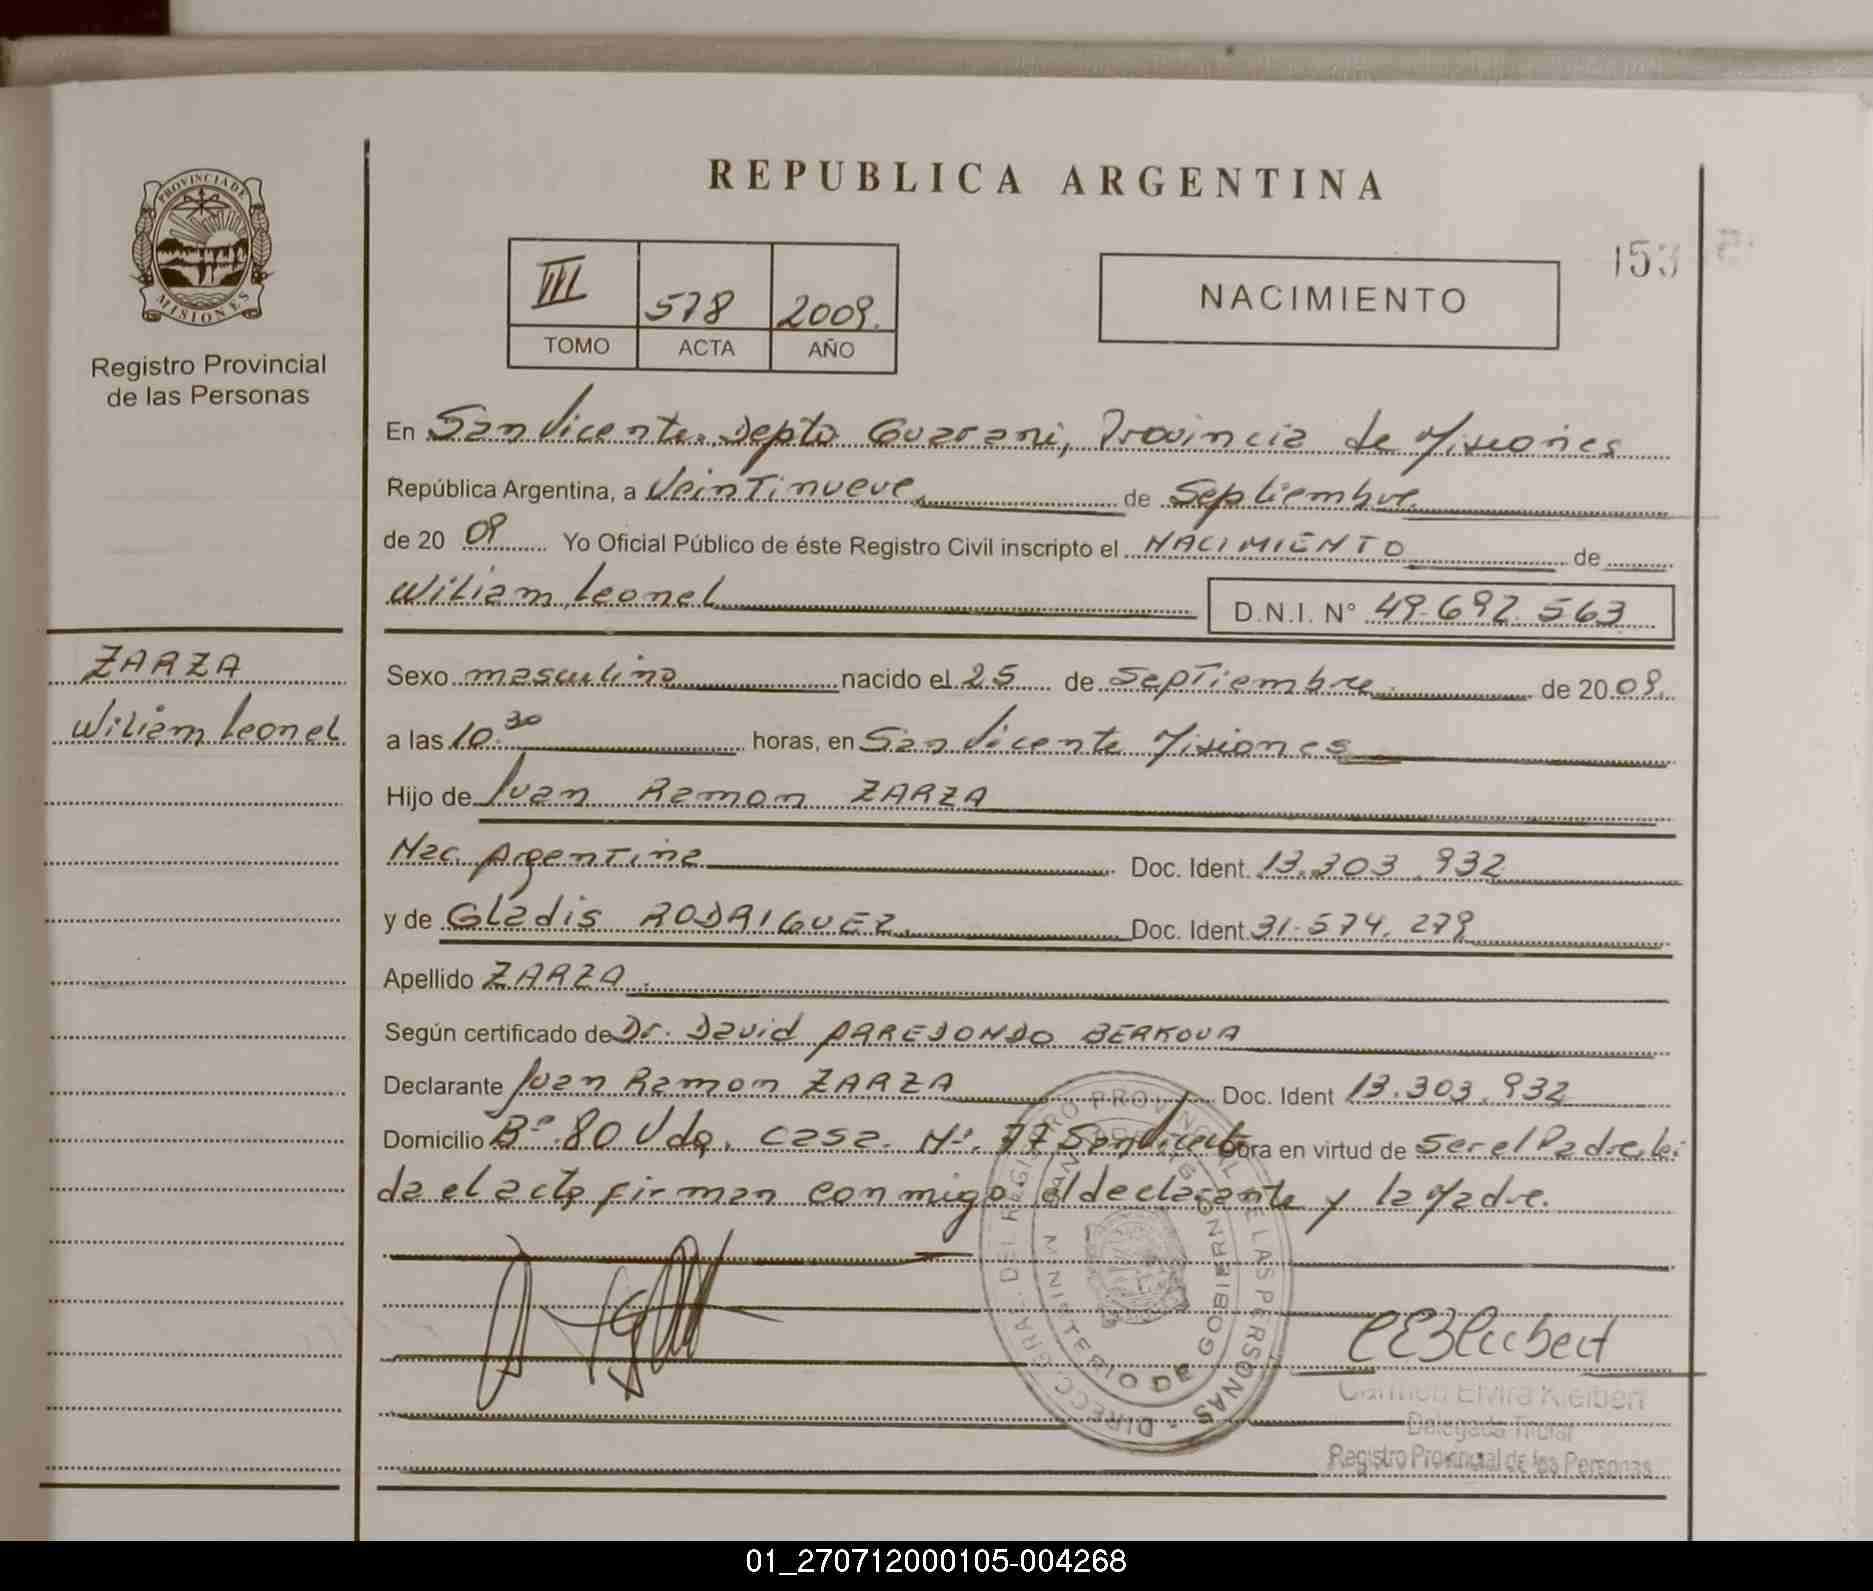 REPUBLICA ARGENTINA
PROVINCIA DE
MISIONES
Registro Provincial
de las Personas
III 578 2009.
TOMO ACTA AÑO
NACIMIENTO
153
En San Vicente. Depto Guarani, Provincia de Misiones
República Argentina, a Veintinueve, de Septiembre.
de 20 09 Yo Oficial Público de éste Registro Civil inscripto el NACIMIENTO de
Wiliam Leonel D.N.I. N° 49.692.563
ZARZA
Wiliam Leonel
Sexo masculino nacido el 25 de Septiembre. de 20 09.
a las 10.30 horas, en San Vicente Misiones
Hijo de Juan Ramon ZARZA
Nac. Argentina Doc. Ident. 13.303.932
y de Gladis RODRIGUEZ. Doc. Ident. 31.574.279
Apellido ZARZA.
Según certificado de Dr. David ARREDONDO BERKOVA
Declarante Juan Ramon ZARZA Doc. Ident 13.303.932
Domicilio B° 80 Vdas. Casa. N°. 77 San Vicente Obra en virtud de ser el Padre, lei
da el acta firman conmigo el declarante y la Madre.
DIREC. GRAL. DEL REGISTRO PROVINCIAL DE LAS PERSONAS
MINISTERIO DE GOBIERNO
Carmen Elvira Kleibert
Delegada Titular
Registro Provincial de las Personas
01_270712000105-004268